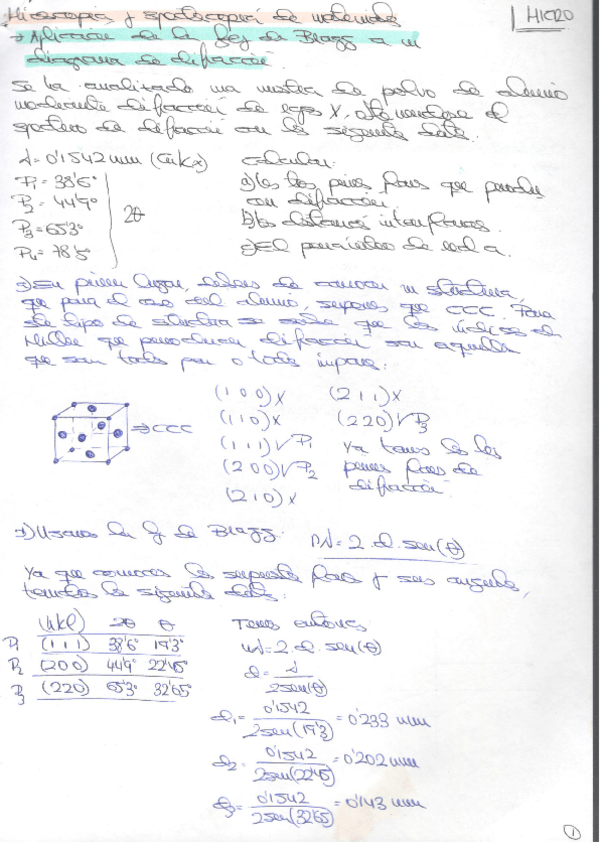 Microscopía y espectroscopía de materiales
MICRO
→ Aplicación de la ley de Bragg a un
diagrama de difracción.
Se ha analizado una muestra de polvo de aluminio
mediante difracción de rayos X, obteniéndose el
espectro de difracción con los siguientes datos.
λ = 0'1542 nm (CuKα)
P1 = 38'6°
P2 = 44'9°
P3 = 65'3°
P4 = 78'5°
2θ
Calcular:
a) Los tres primeros planos que producen
difracción.
b) Las distancias interplanares.
c) El parámetro de red a.
→ En primer lugar, debemos de conocer su estructura,
que para el caso del aluminio, sabemos que CCC. Para
este tipo de estructura se sabe que los índices de
Miller que producen difracción son aquellos
que son todos par o todos impares:
⇒ CCC
(1 0 0) X
(1 1 0) X
(1 1 1) √ P1
(2 0 0) √ P2
(2 1 0) X
(2 1 1) X
(2 2 0) √ P3
Ya tenemos los tres
primeros planos de
difracción.
→ Usamos la ley de Bragg: nλ = 2·d·sen(θ)
Ya que conocemos los respectivos planos y sus ángulos,
tenemos los siguientes datos:
(hkl) 2θ θ
P1 (1 1 1) 38'6° 19'3°
P2 (200) 44'9° 22'45°
P3 (220) 65'3° 32'65°
Tenemos entonces:
nλ = 2·d·sen(θ)
d = λ / 2sen(θ)
d1 = 0'1542 / 2sen(19'3) = 0'233 nm
d2 = 0'1542 / 2sen(22'45) = 0'202 nm
d3 = 0'1542 / 2sen(32'65) = 0'143 nm
1